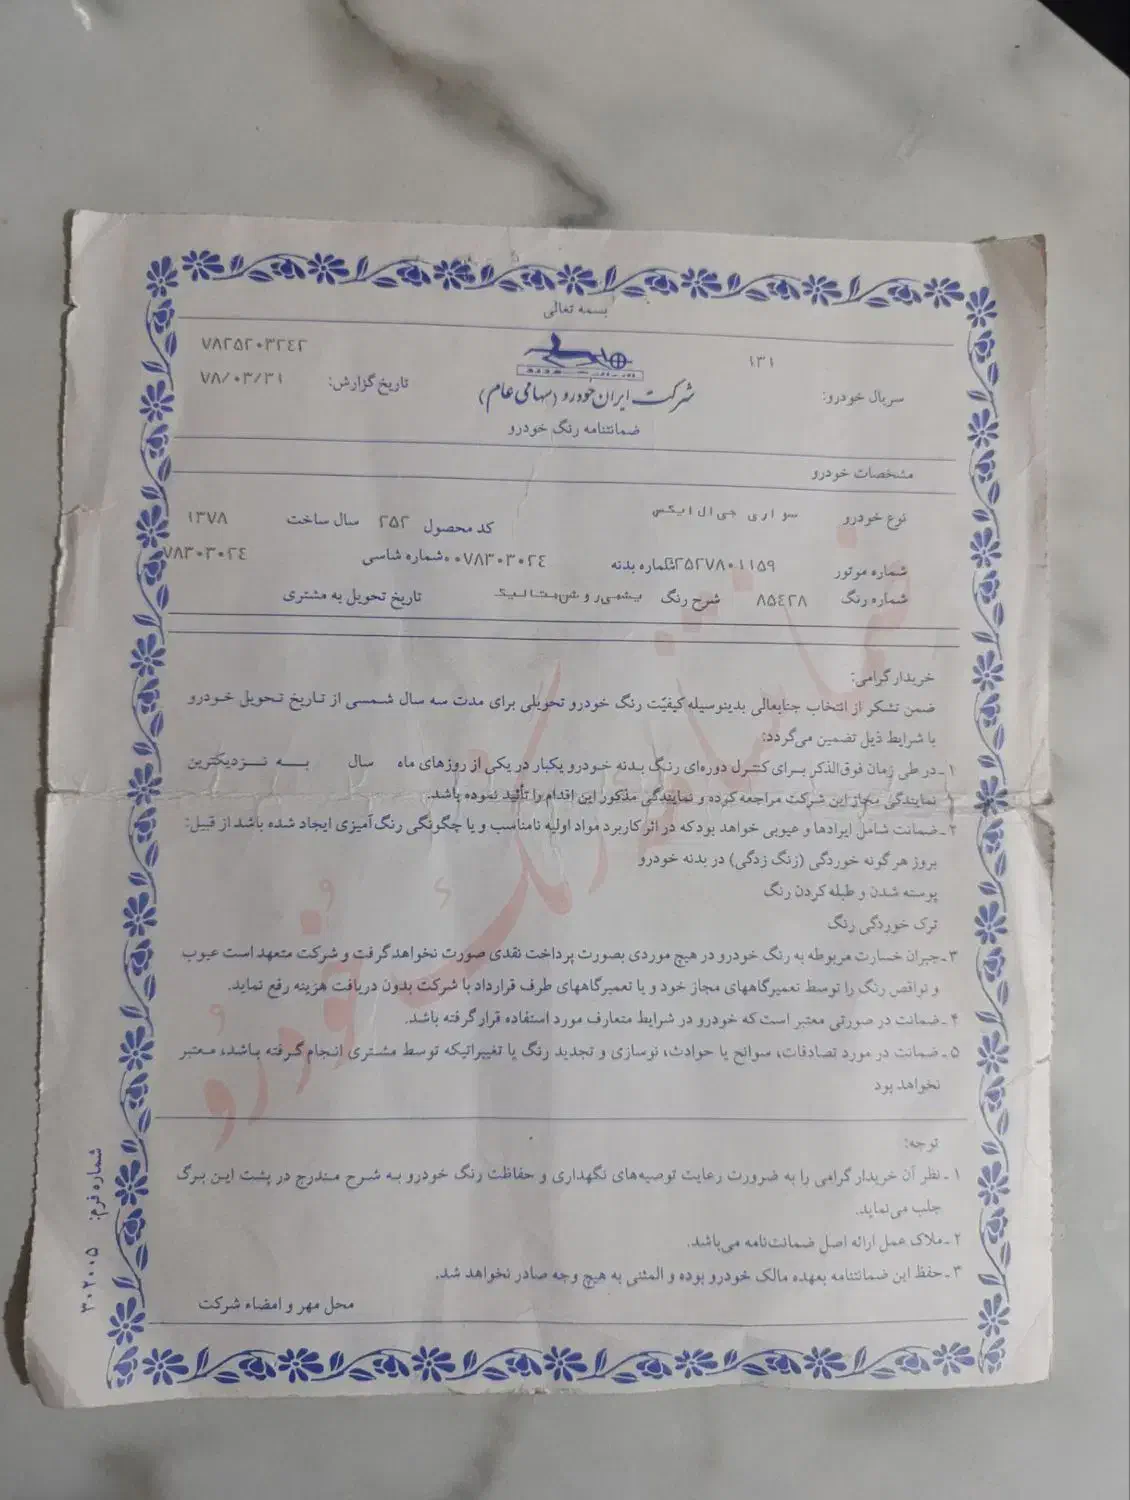 بسمه تعالی
۱۳۱
۷۸۲۵۲۰۳۲۴۲
سریال خودرو:
تاریخ گزارش: ۷۸/۰۳/۳۱
شرکت ایران خودرو (سهامی عام)
ضمانتنامه رنگ خودرو
مشخصات خودرو
نوع خودرو سواری جی ال ایکس کد محصول ۲۵۲ سال ساخت ۱۳۷۸
شماره موتور ۲۲۵۲۷۸۰۱۱۵۹ شماره بدنه ۰۰۷۸۳۰۳۰۲۴ شماره شاسی ۷۸۳۰۳۰۲۴
شماره رنگ ۸۵۴۲۸ شرح رنگ یشمی روشن متالیک تاریخ تحویل به مشتری
خریدار گرامی:
ضمن تشکر از انتخاب جنابعالی بدینوسیله کیفیّت رنگ خودرو تحویلی برای مدت سه سال شمسی از تاریخ تحویل خودرو
با شرایط ذیل تضمین می‌گردد:
۱ـ در طی زمان فوق‌الذکر برای کنترل دوره‌ای رنگ بدنه خودرو یکبار در یکی از روزهای ماه سال به نزدیکترین
نمایندگی مجاز این شرکت مراجعه کرده و نمایندگی مذکور این اقدام را تأئید نموده باشد.
۲ـ ضمانت شامل ایرادها و عیوبی خواهد بود که در اثر کاربرد مواد اولیه نامناسب و یا چگونگی رنگ آمیزی ایجاد شده باشد از قبیل:
بروز هر گونه خوردگی (زنگ زدگی) در بدنه خودرو
پوسته شدن و طبله کردن رنگ
ترک خوردگی رنگ
۳ـ جبران خسارت مربوطه به رنگ خودرو در هیچ موردی بصورت پرداخت نقدی صورت نخواهد گرفت و شرکت متعهد است عیوب
و نواقص رنگ را توسط تعمیرگاههای مجاز خود و یا تعمیرگاههای طرف قرارداد با شرکت بدون دریافت هزینه رفع نماید.
۴ـ ضمانت در صورتی معتبر است که خودرو در شرایط متعارف مورد استفاده قرار گرفته باشد.
۵ـ ضمانت در مورد تصادفات، سوانح یا حوادث، نوسازی و تجدید رنگ یا تغییراتیکه توسط مشتری انجام گرفته باشد، معتبر
نخواهد بود
توجه:
۱ـ نظر آن خریدار گرامی را به ضرورت رعایت توصیه‌های نگهداری و حفاظت رنگ خودرو به شرح مندرج در پشت این برگ
جلب می‌نماید.
۲ـ ملاک عمل ارائه اصل ضمانت‌نامه می‌باشد.
۳ـ حفظ این ضمانتنامه بعهده مالک خودرو بوده و المثنی به هیچ وجه صادر نخواهد شد.
محل مهر و امضاء شرکت
شماره فرم: ۳۰۲۰۰۵
ضمانتنامه رنگ خودرو